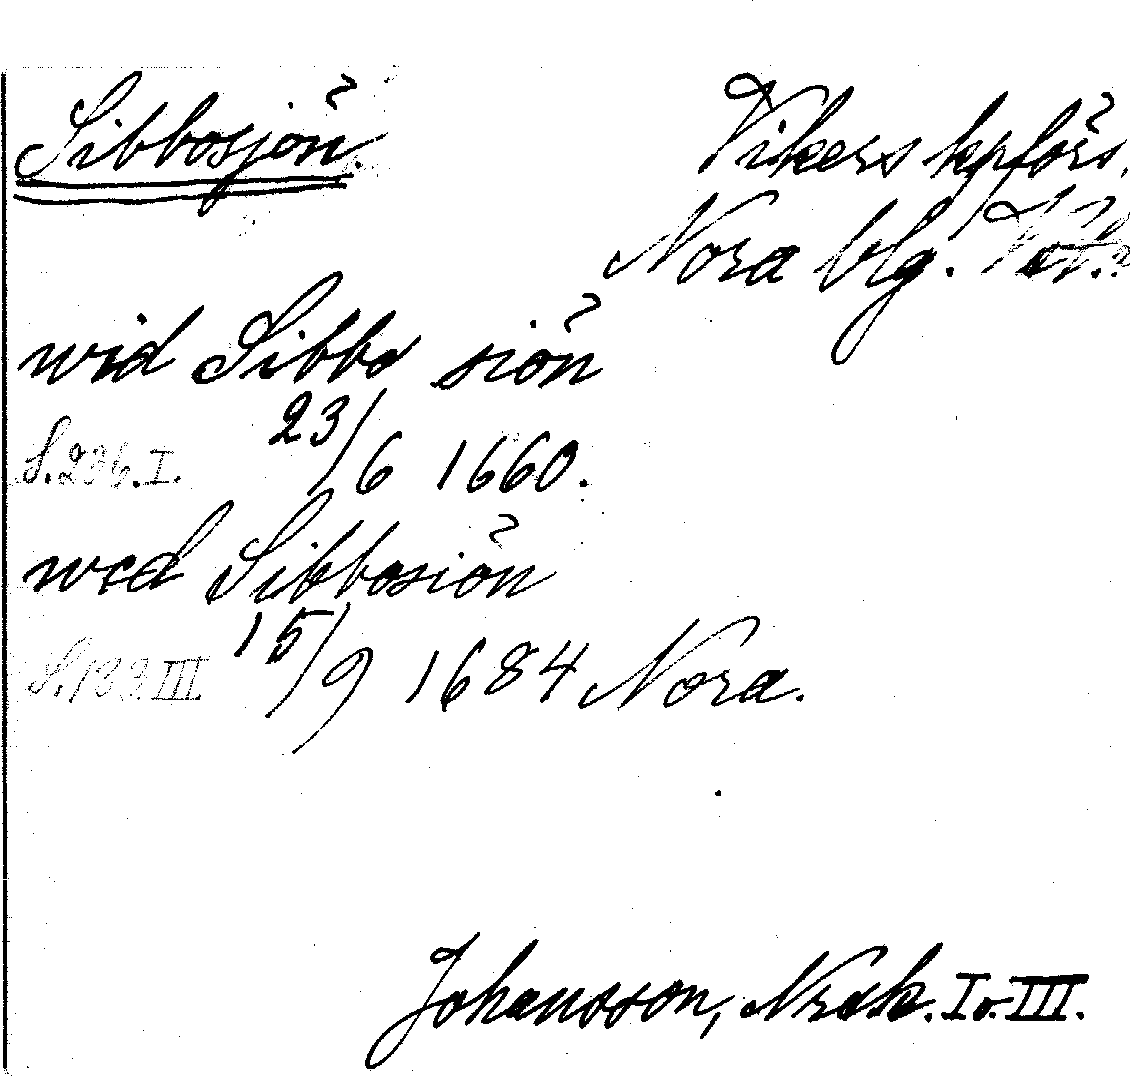 Sibbosjön. Vikers kpförs.
Nora blg.
wid Sibbo siön
S. 236. I. 23/6 1660.
wed Sibbosiön
S. 133. III. 15/9 1684 Nora.
Johansson, Nrak. I o. III.